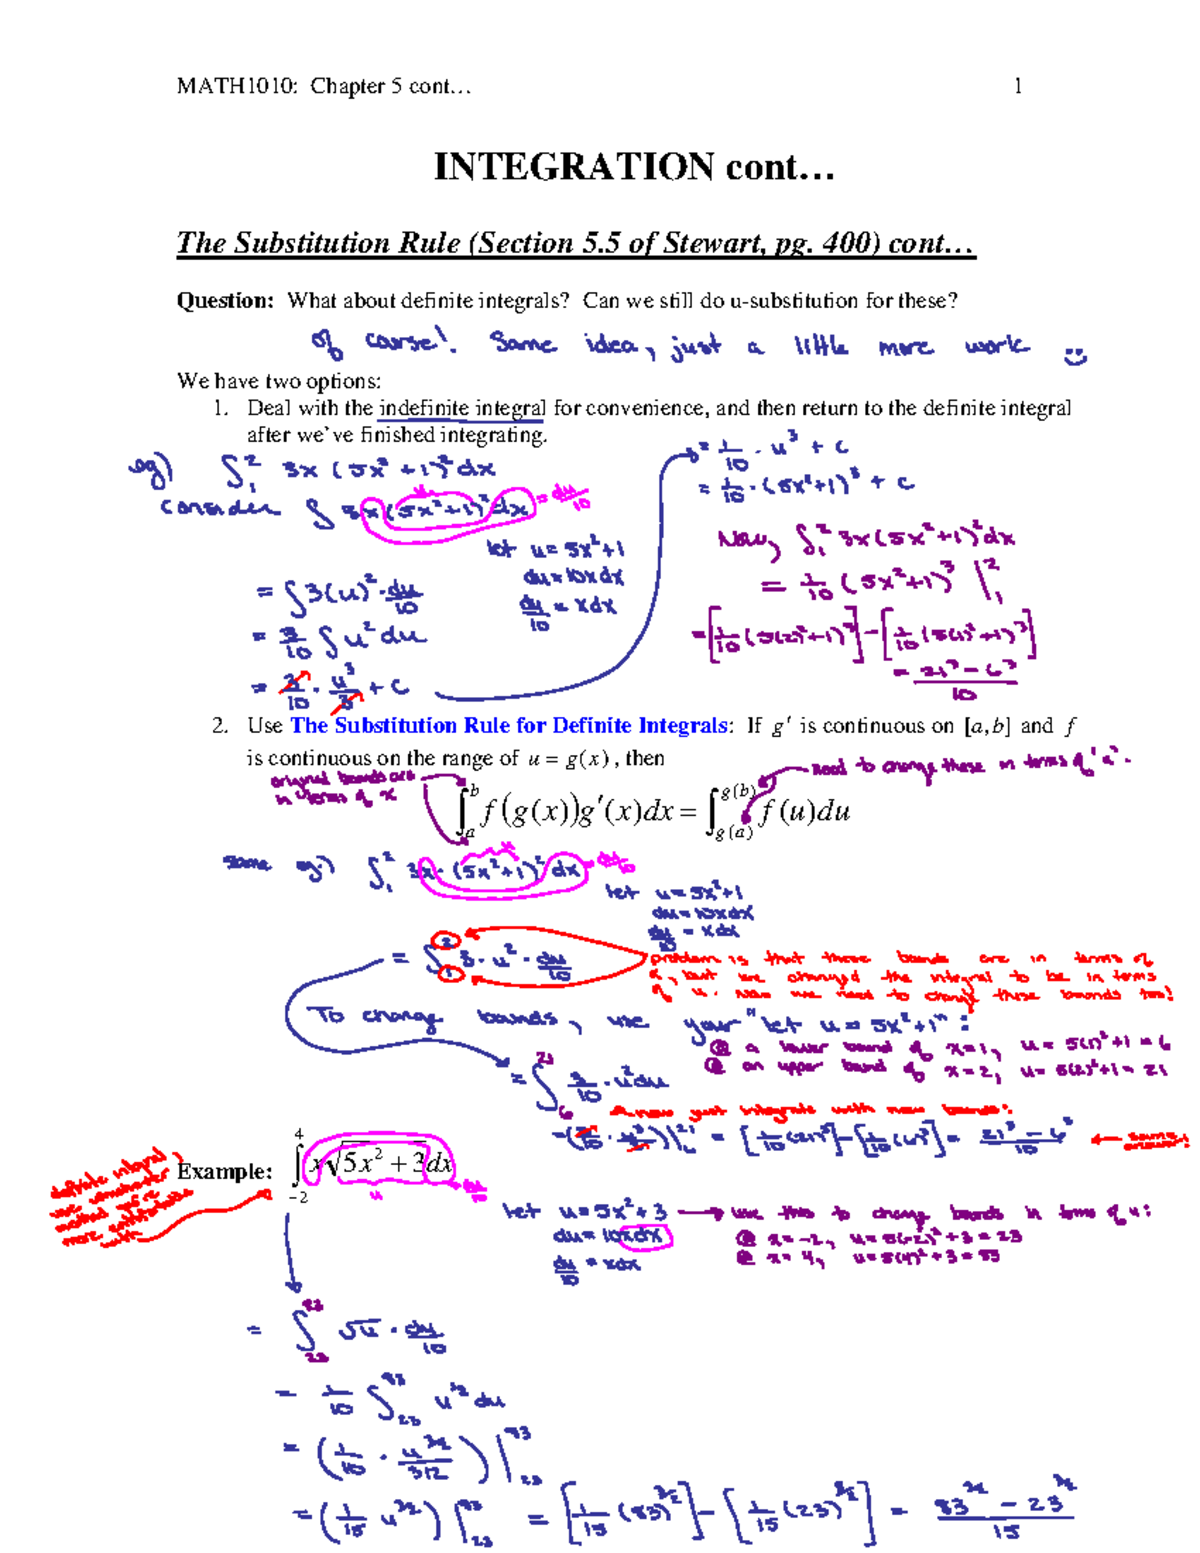 MATH1010: Chapter 5 cont… 1
INTEGRATION cont…
The Substitution Rule (Section 5.5 of Stewart, pg. 400) cont…
Question: What about definite integrals? Can we still do u-substitution for these?
of course! Same idea, just a little more work
We have two options:
1. Deal with the indefinite integral for convenience, and then return to the definite integral
after we've finished integrating.
eg) ∫₁² 3x (5x² + 1)² dx
consider ∫ 3x (5x² + 1)² dx
u
= du/10
let u = 5x² + 1
du = 10x dx
du/10 = x dx
= ∫ 3(u)² · du/10
= 3/10 ∫ u² du
= 3/10 · u³/3 + C
= 1/10 · u³ + C
= 1/10 · (5x² + 1)³ + C
Now, ∫₁² 3x (5x² + 1)² dx
= 1/10 (5x² + 1)³ |₁²
= [1/10 (5(2)² + 1)³] - [1/10 (5(1)² + 1)³]
= 21³ - 6³ / 10
2. Use The Substitution Rule for Definite Integrals: If g′ is continuous on [a,b] and f
is continuous on the range of u = g(x), then
original bounds are
in terms of x
need to change these in terms of "u".
∫ₐᵇ f(g(x))g′(x)dx = ∫_{g(a)}^{g(b)} f(u)du
same eg.) ∫₁² 3x · (5x² + 1)² dx
u
= du/10
let u = 5x² + 1
du = 10x dx
du/10 = x dx
= ∫₁² 3 · u² · du/10
problem is that these bounds are in terms of
x, but we changed the integral to be in terms
of u. Now we need to change these bounds too!
To change bounds, use your "let u = 5x² + 1":
@ a lower bound of x = 1, u = 5(1)² + 1 = 6
@ an upper bound of x = 2, u = 5(2)² + 1 = 21
= ∫₆²¹ 3/10 · u² du
now just integrate with new bounds:
= (3/10 · u³/3) |₆²¹ = [1/10 (21)³] - [1/10 (6)³] = 21³ - 6³ / 10
same answer!
Example: ∫₋₂⁴ x√(5x² + 3) dx
u
du/10
definite integral
method
more
let u = 5x² + 3 → use this to change bounds in terms of u:
du = 10x dx
@ x = -2, u = 5(-2)² + 3 = 23
du/10 = x dx
@ x = 4, u = 5(4)² + 3 = 83
= ∫₂₃⁸³ √u · du/10
= 1/10 ∫₂₃⁸³ u^{1/2} du
= (1/10 · u^{3/2} / 3/2) |₂₃⁸³
= (1/15 u^{3/2}) |₂₃⁸³ = [1/15 (83)^{3/2}] - [1/15 (23)^{3/2}] = 83^{3/2} - 23^{3/2} / 15